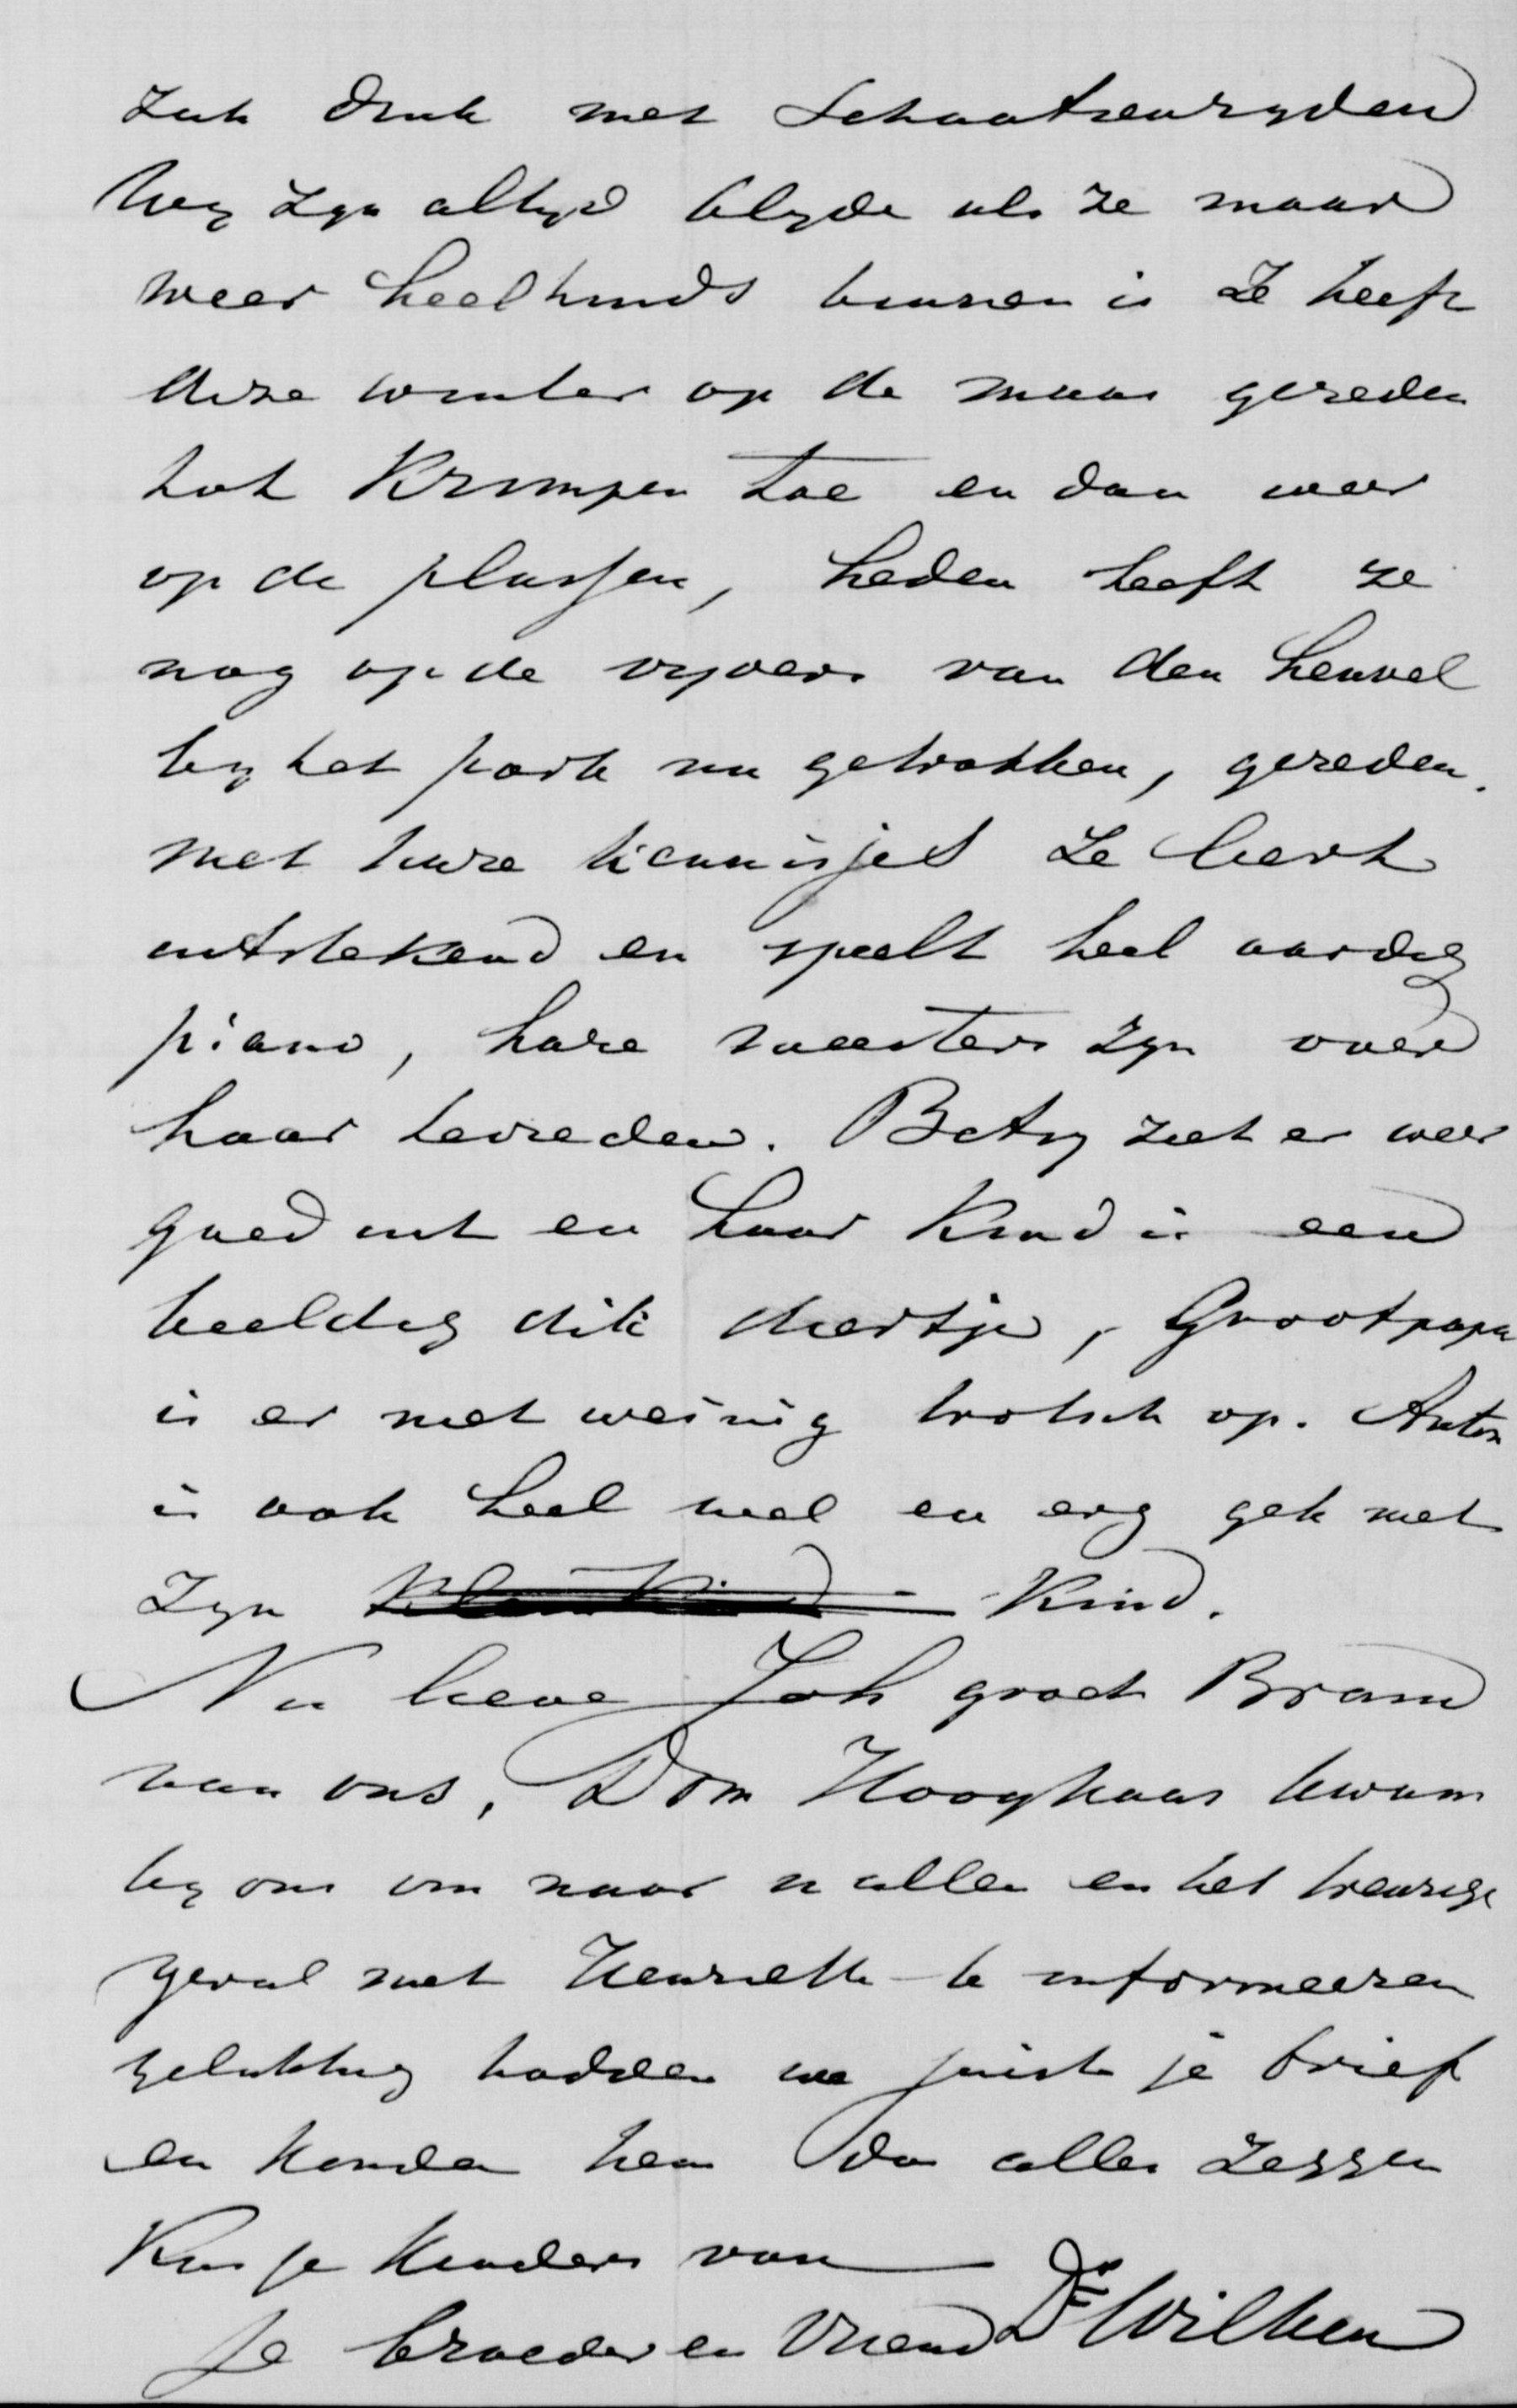 zich druk met Schaatsenryden
Wy zyn altyd blyde als ze maar
weer heelhuids binnen is Ze heeft
deze winter op de maas gereden
tot Krimpen toe en dan weer
op de plassen, heden heeft ze
nog op de vyvers van den heuvel
by het park nu getrokken, gereden.
met hare kennisjes Ze leert
uitstekend en speelt heel aardig
piano, hare meesters zyn over
haar tevreden. Betsy ziet er weer
goed uit en haar Kind is een
beeldig dik diertje, Grootpapa
is er niet weinig trotsch op. Anton
is ook heel wel en erg gek met
Zyn Kleinkind Kind.
Nu lieve Joh groet Bram
van ons, Dom Hooghaas kwam
by ons om naar u allen en het treurige
geval met Henriette te informeeren
gelukkig hadden we juist je brief
en konden hem dus alles zeggen
Kus je kinders van
Je broeder en Vriend Dr Wilken